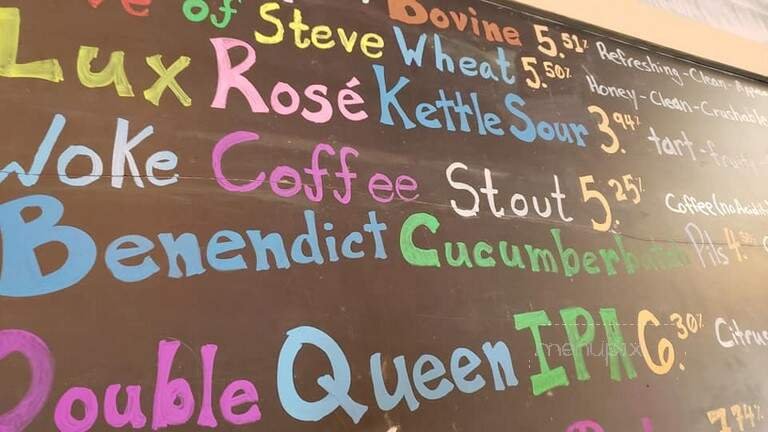 Bovine 5.51% Refreshing-Clean-
of Steve Wheat 5.50% Honey-Clean-Crushable
Lux Rosé Kettle Sour 3.94% tart-fruity-
Woke Coffee Stout 5.25% Coffee (no Acidity
Benendict Cucumberbatch Pils 4.50%
Double Queen IPA 6.30% Citrus
7.74%
menupix